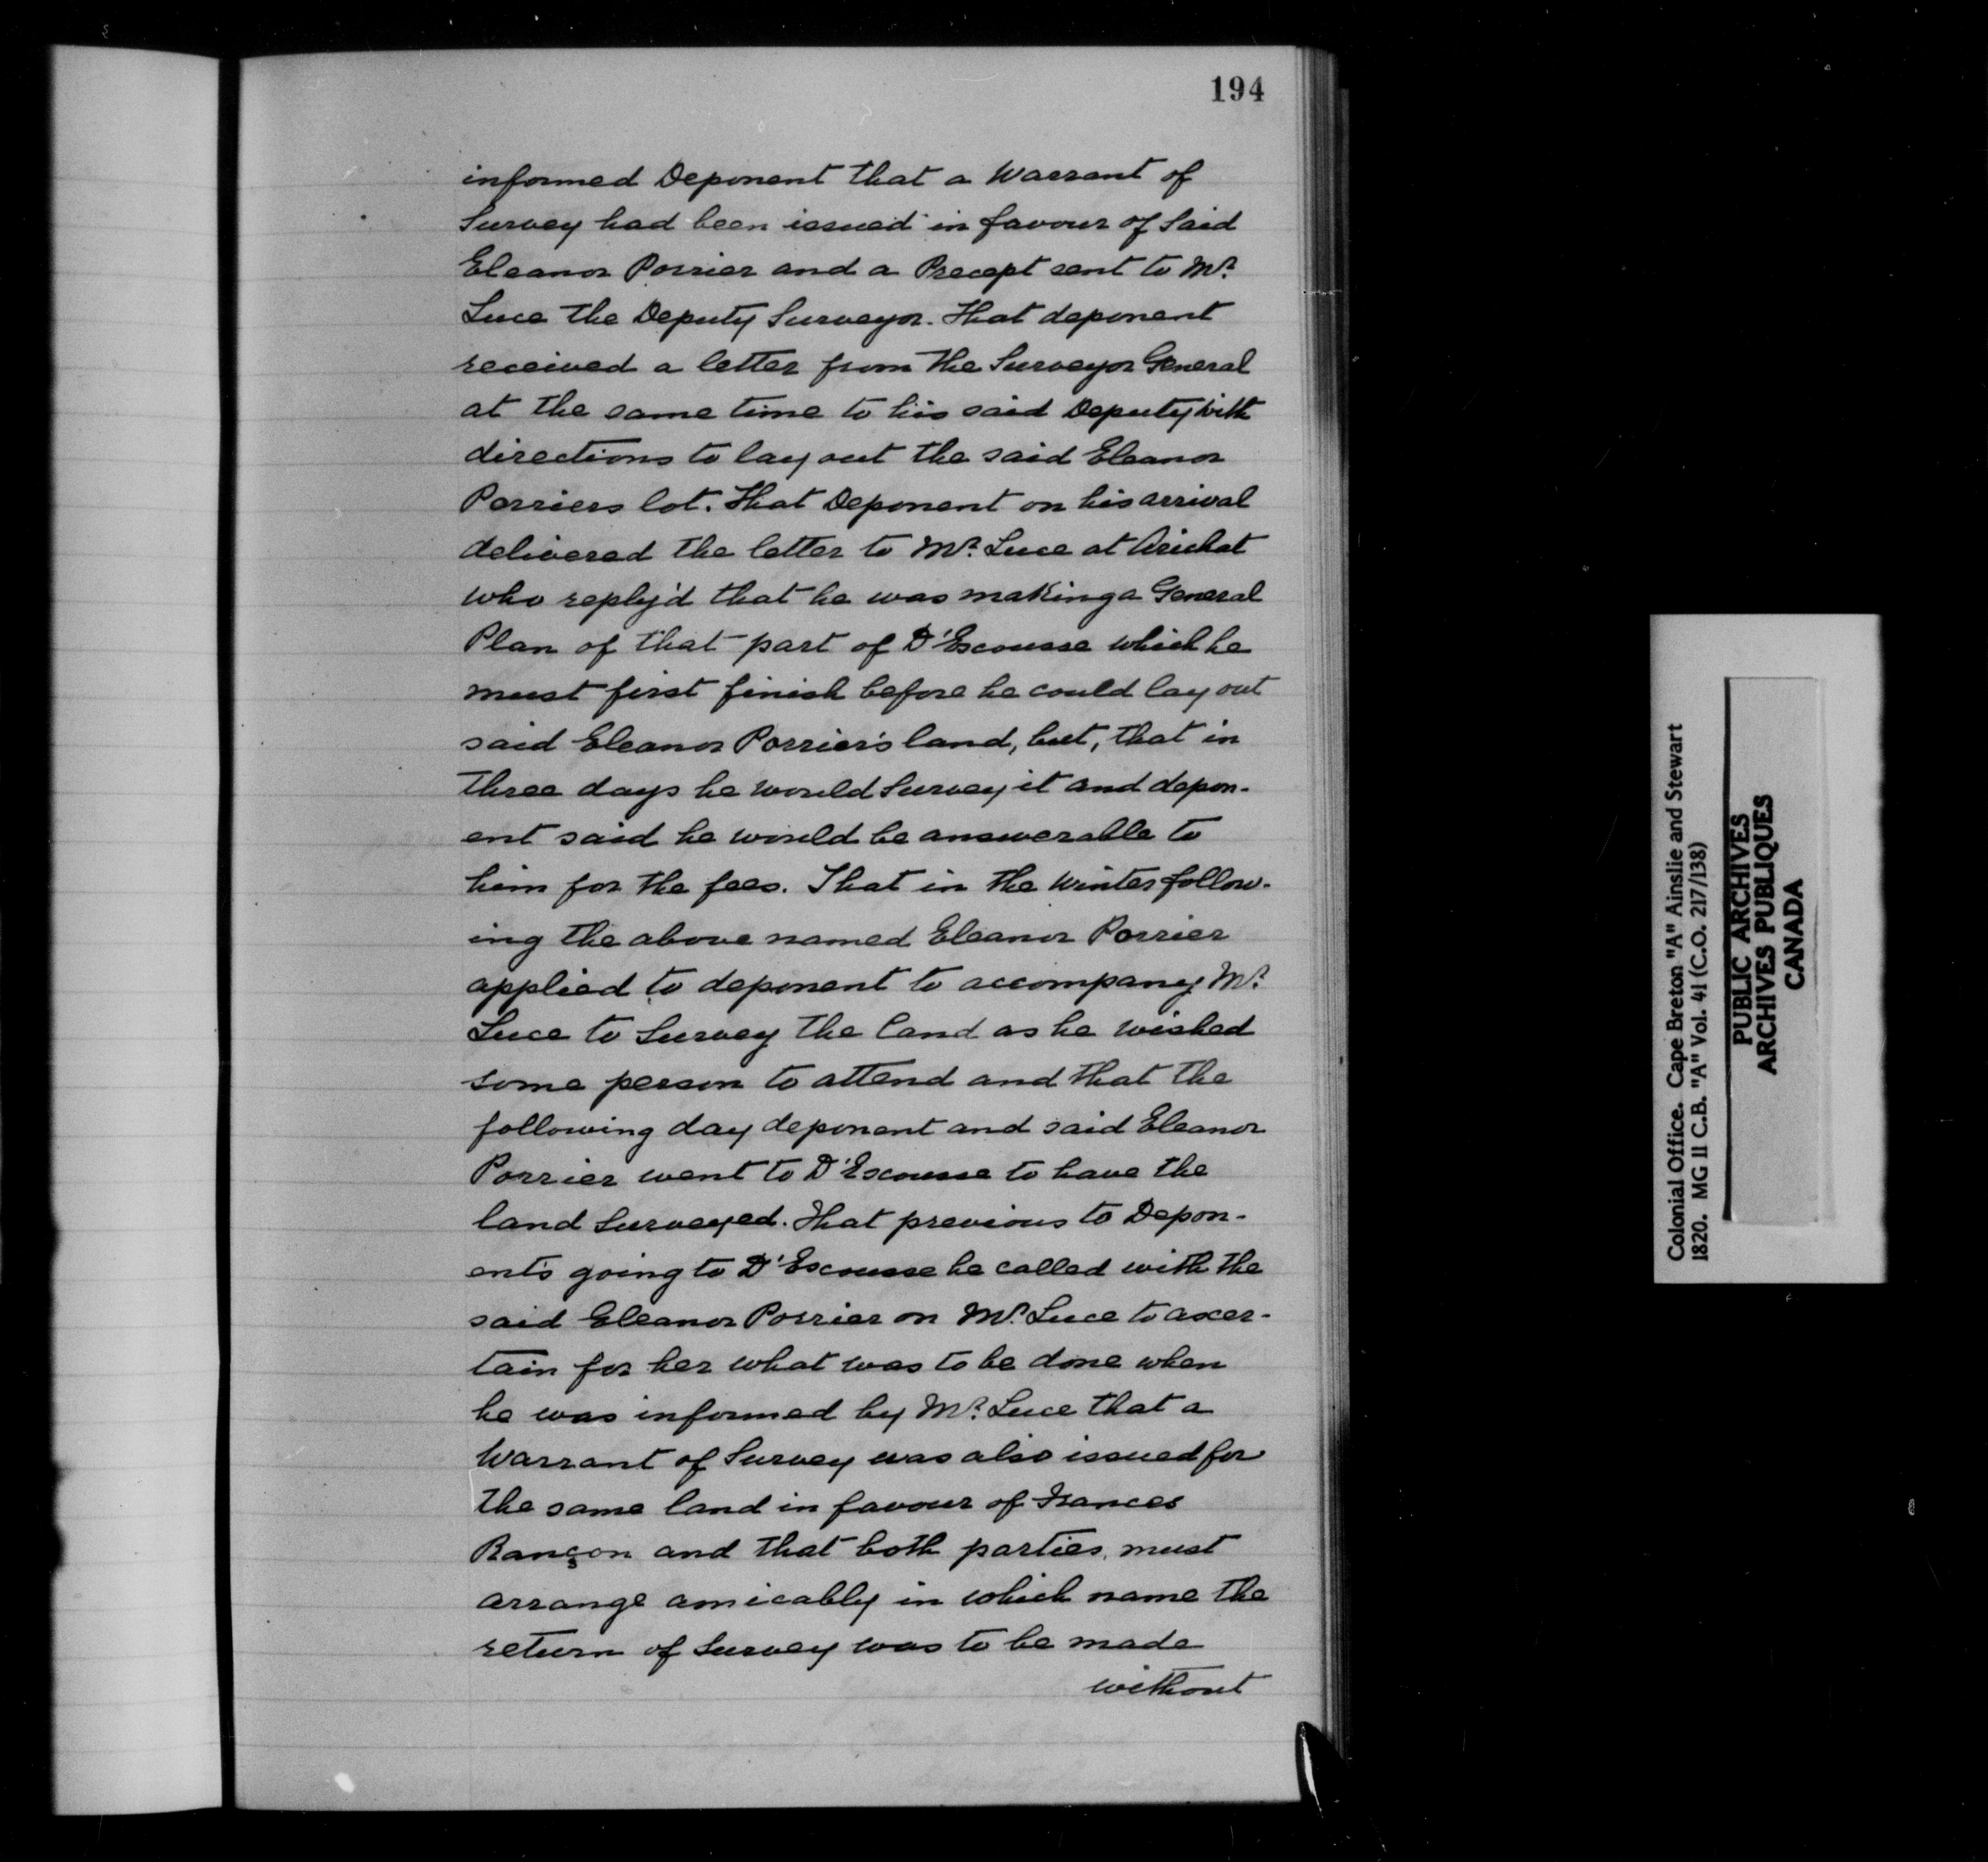 194
informed Deponent that a Warrant of
Survey had been issued in favour of Said
Eleanor Porrier and a Precept sent to Mr.
Luce the Deputy Surveyor. That deponent
received a letter from the Surveyor General
at the same time to his said Deputy with
directions to lay out the said Eleanor
Porriers lot. That Deponent on his arrival
delivered the letter to Mr. Luce at Arichat
who reply'd that he was making a General
Plan of that part of D'Escousse which he
must first finish before he could lay out
said Eleanor Porrier's land, but, that in
three days he would Survey it and depon-
ent said he would be answerable to
him for the fees. That in the Winter follow-
ing the above named Eleanor Porrier
applied to deponent to accompany Mr.
Luce to Survey the land as he wished
some person to attend and that the
following day deponent and said Eleanor
Porrier went to D'Escousse to have the
land Surveyed. That previous to Depon-
ent's going to D'Escousse he called with the
said Eleanor Porrier on Mr. Luce to ascer-
tain for her what was to be done when
he was informed by Mr. Luce that a
Warrant of Survey was also issued for
the same land in favour of Frances
Rançon and that both parties must
arrange amicably in which name the
return of Survey was to be made
without
Colonial Office. Cape Breton "A" Ainslie and Stewart
1820. MG 11 C.B. "A" Vol. 41 (C.O. 217/138)
PUBLIC ARCHIVES
ARCHIVES PUBLIQUES
CANADA